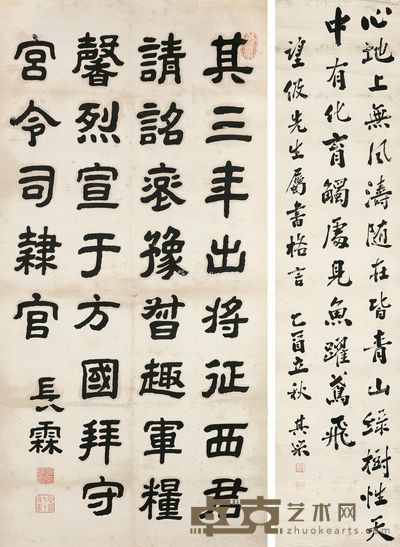 心地上無風濤隨在皆青山綠樹性天
中有化育觸處見魚躍鳶飛
望先生屬書格言 乙酉立秋 其榮
其三年出将征西君
請詺豫趣軍糧
馨烈宣于方國拜守
宮令司隸官 長霖
卓克艺术网
zhuokearts.com